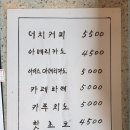 더치커피 5500
아메리카노 4500
아이스아메리카노 5000
카페라떼 5000
카푸치노 5000
핫초코 4500